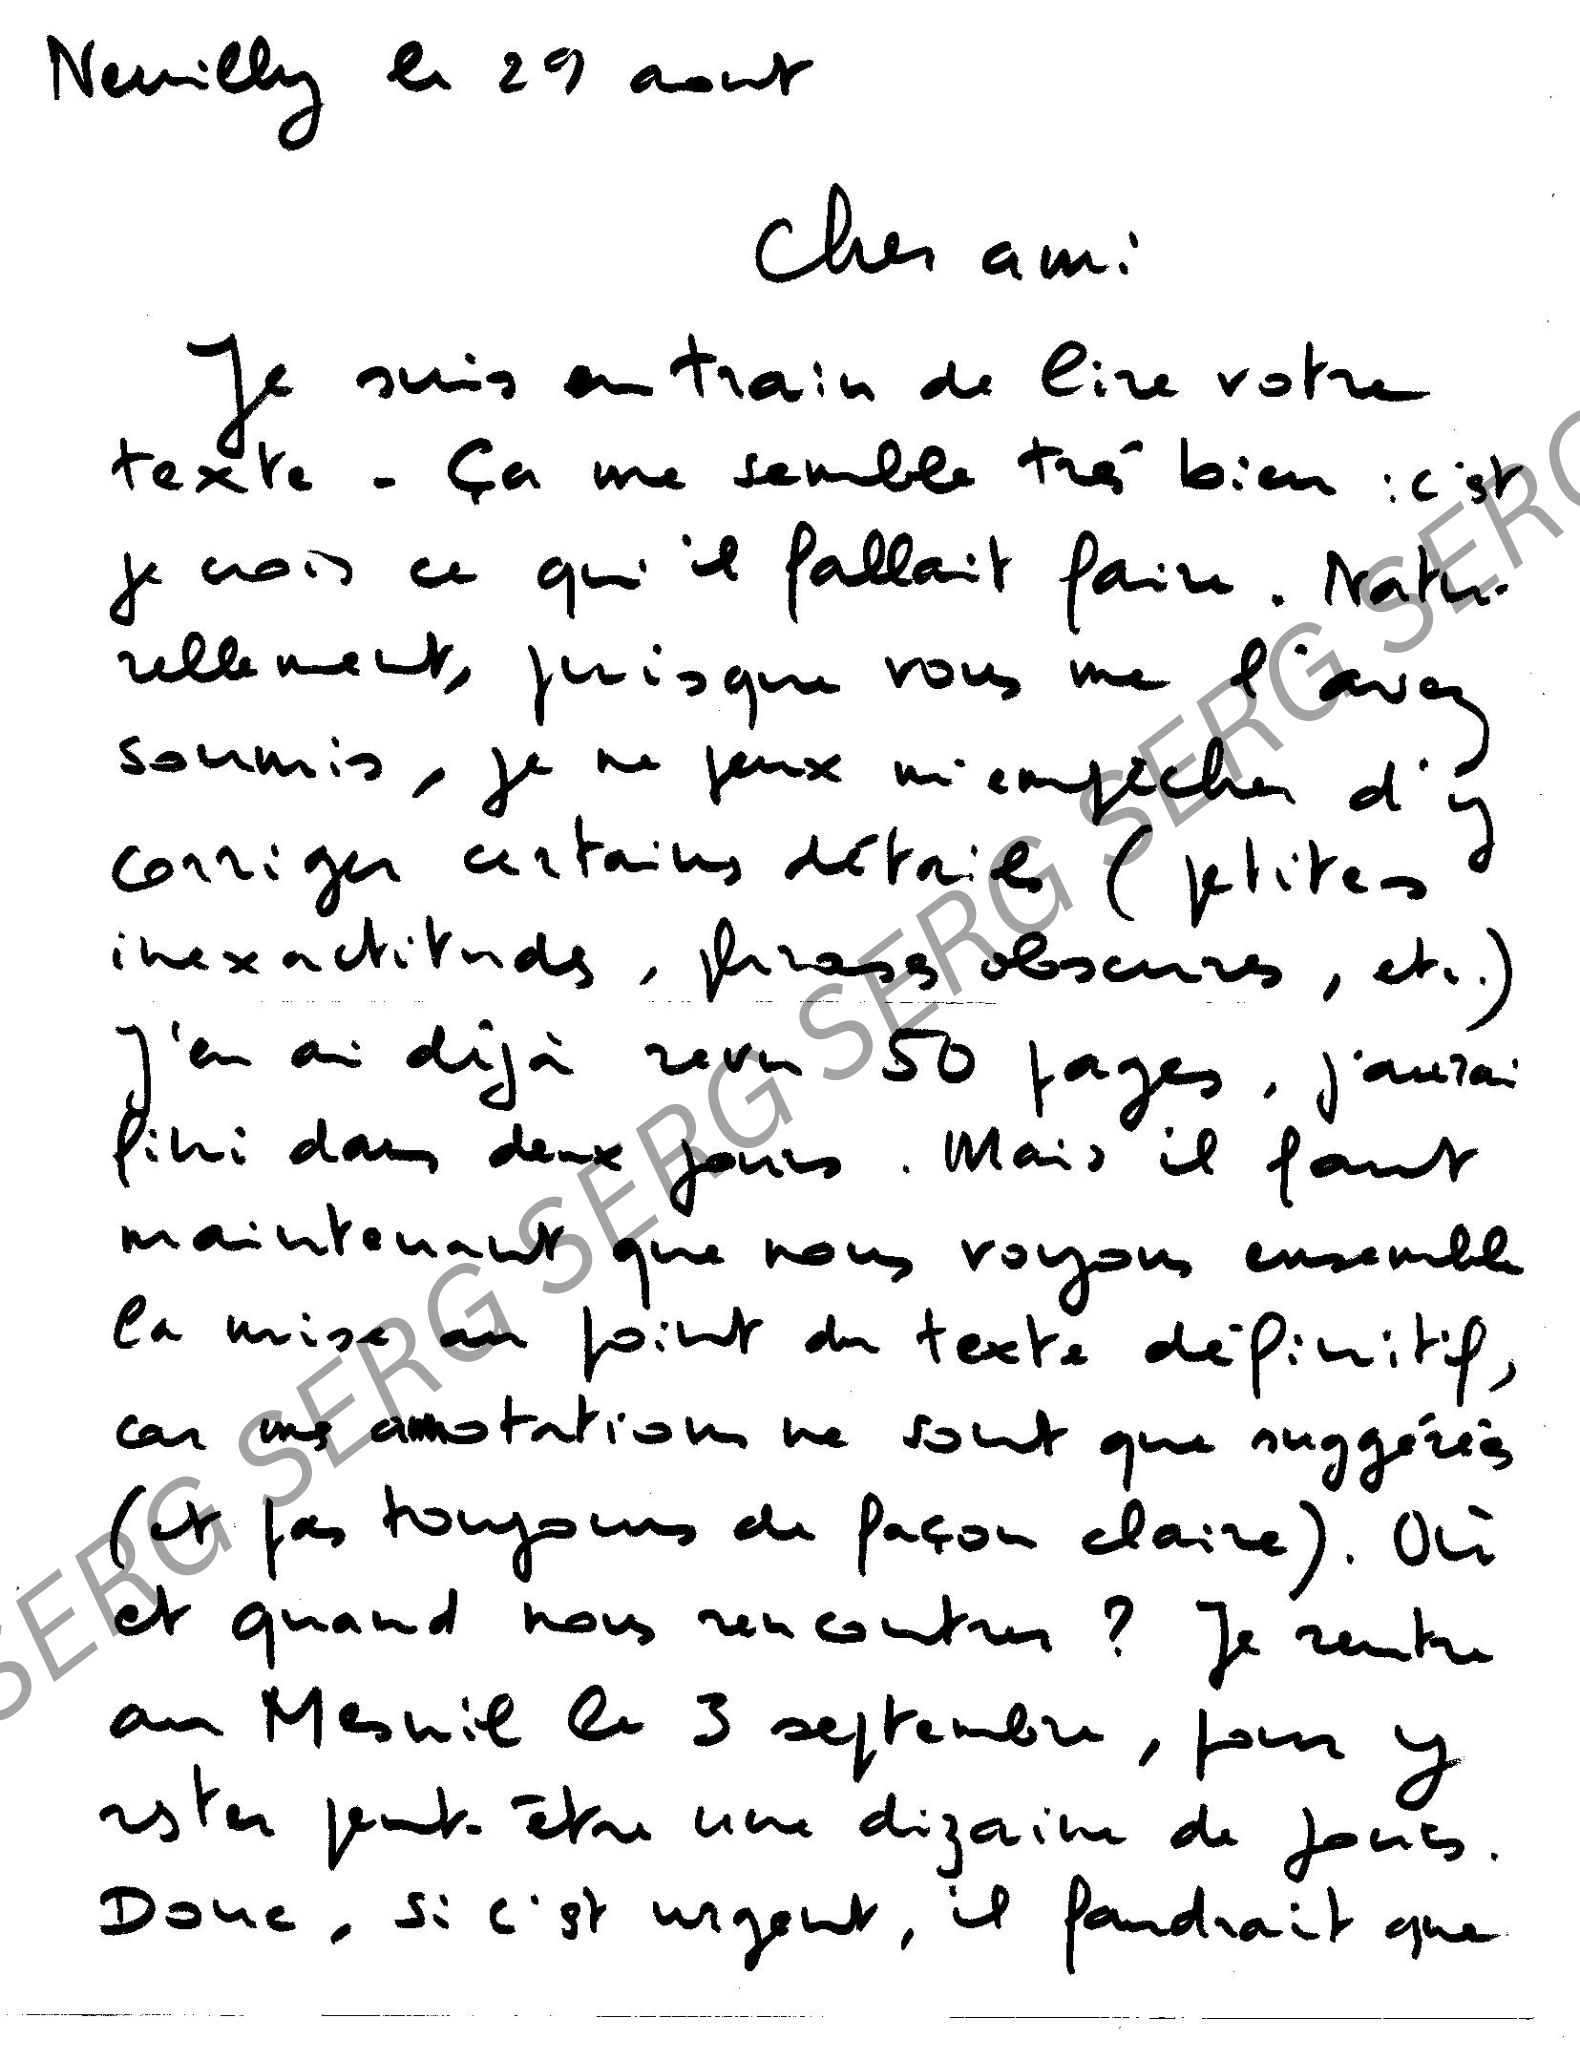 Neuilly le 29 aout
Cher ami
Je suis en train de lire votre
texte - Ça me semble trés bien : c'est
je crois ce qu'il fallait faire. Natu-
rellement, puisque vous me l'avez
soumis, je ne peux m'empêcher d'y
corriger certains détails (petites
inexactitudes, phrases obscures, etc.)
J'en ai déjà revu 50 pages, j'aurai
fini dans deux jours. Mais il faut
maintenant que nous voyons ensemble
la mise au point du texte définitif,
car mes annotations ne sont que suggérées
(et pas toujours de façon claire). Où
et quand nous rencontrer ? Je rentre
au Mesnil le 3 septembre, pour y
rester peut-être une dizaine de jours.
Donc, si c'est urgent, il faudrait que
SERG SERG SERG SERG SERG SERG SERG SERG